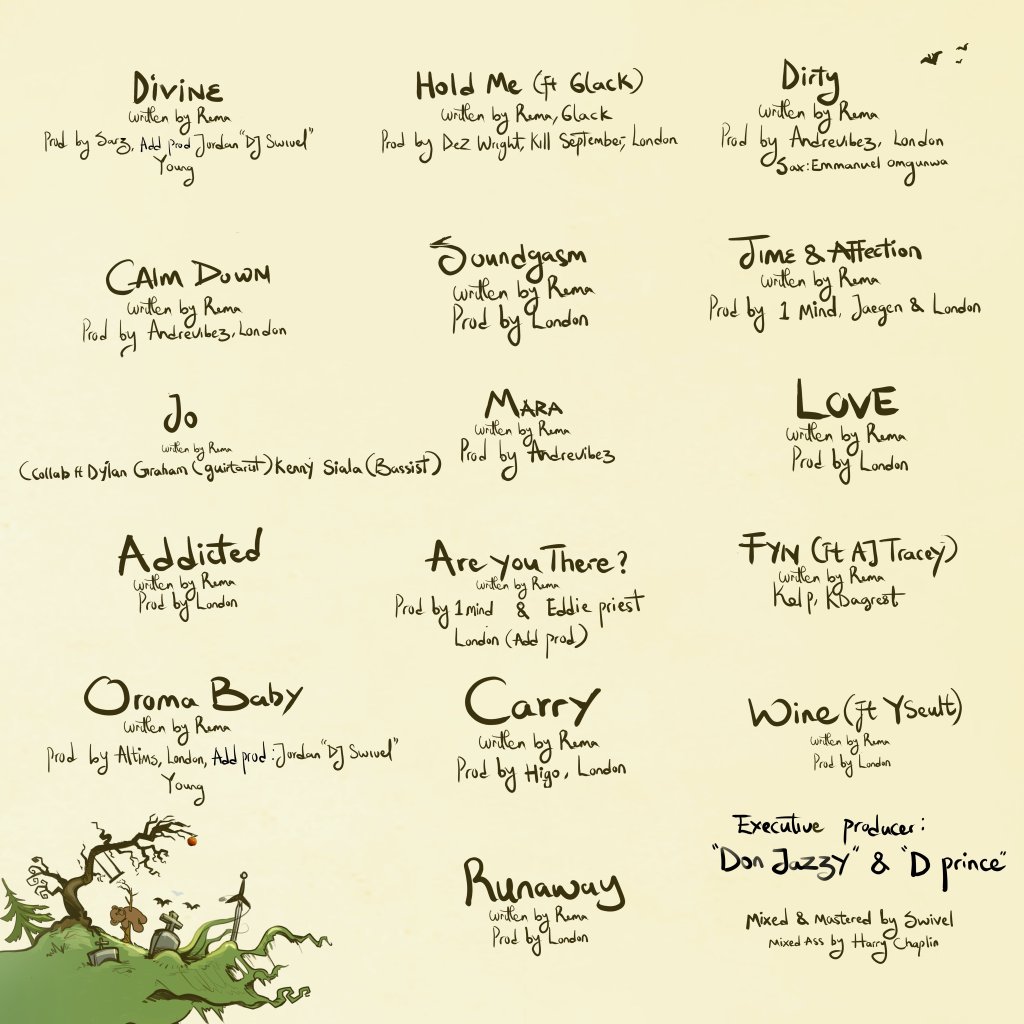 Divine
written by Rema
Prod by Sarz, Add prod Jordan "DJ Swivel"
Young
Hold Me (ft 6lack)
written by Rema, 6lack
Prod by Dez Wright, Kill September, London
Dirty
written by Rema
Prod by Andrevibez, London
Sax: Emmanuel Omgunwa
Calm Down
written by Rema
Prod by Andrevibez, London
Soundgasm
written by Rema
Prod by London
Time & Affection
written by Rema
Prod by 1 Mind, Jaegen & London
Jo
written by Rema
(Collab ft Dylan Graham (guirtarist) Kenny Siala (Bassist)
Mara
written by Rema
Prod by Andrevibez
LOVE
written by Rema
Prod by London
Addicted
written by Rema
Prod by London
Are you There?
written by Rema
Prod by 1 mind & Eddie priest
London (Add prod)
FYN (ft AJ Tracey)
written by Rema
Kel p, KDagreat
Oroma Baby
written by Rema
Prod by Altims, London, Add prod: Jordan "DJ Swivel"
Young
Carry
written by Rema
Prod by Higo, London
Wine (ft Yseult)
written by Rema
Prod by London
Runaway
written by Rema
Prod by London
Executive producer:
"Don Jazzy" & "D prince"
Mixed & Mastered by Swivel
Mixed Ass by Harry Chaplin